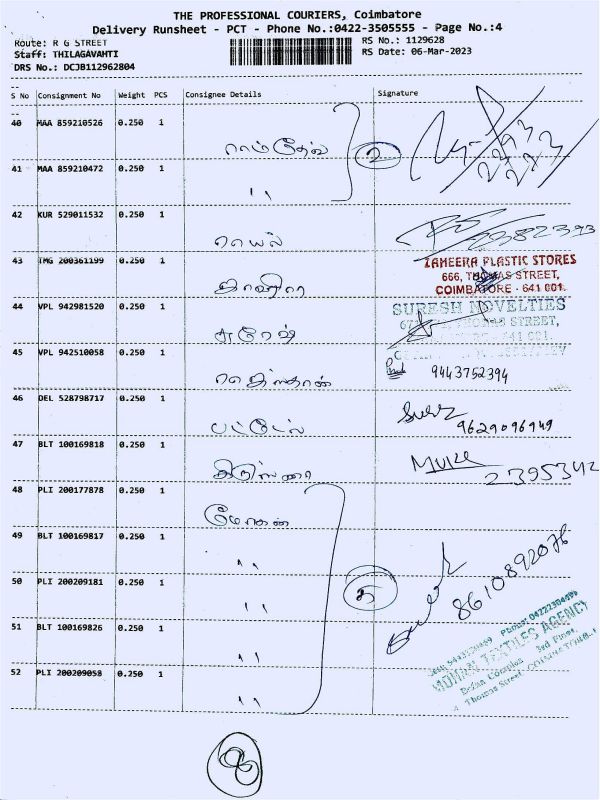 THE PROFESSIONAL COURIERS, Coimbatore
Delivery Runsheet - PCT - Phone No.:0422-3505555 - Page No.:4
Route: R G STREET
RS No.: 1129628
Staff: THILAGAVAHTI
RS Date: 06-Mar-2023
DRS No.: DCJB112962804
S No Consignment No Weight PCS Consignee Details Signature
40 MAA 859210526 0.250 1
ராம்தேவ் 2
41 MAA 859210472 0.250 1
"
42 KUR 529011532 0.250 1
43 TMG 200361199 0.250 1
ZAHEERA PLASTIC STORES
666, THOMAS STREET,
COIMBATORE - 641 001.
44 VPL 942981520 0.250 1
SURESH NOVELTIES
THOMAS STREET,
641 001.
சுரேஷ்
45 VPL 942510058 0.250 1
9443752394
46 DEL 528798717 0.250 1
பட்டேல் 9629096949
47 BLT 100169818 0.250 1
2395342
48 PLI 200177878 0.250 1
மோகன்
49 BLT 100169817 0.250 1
"
50 PLI 200209181 0.250 1
" 5
8610892076
51 BLT 100169826 0.250 1
"
52 PLI 200209058 0.250 1
"
TEXTILES AGENCY
Thomas Street